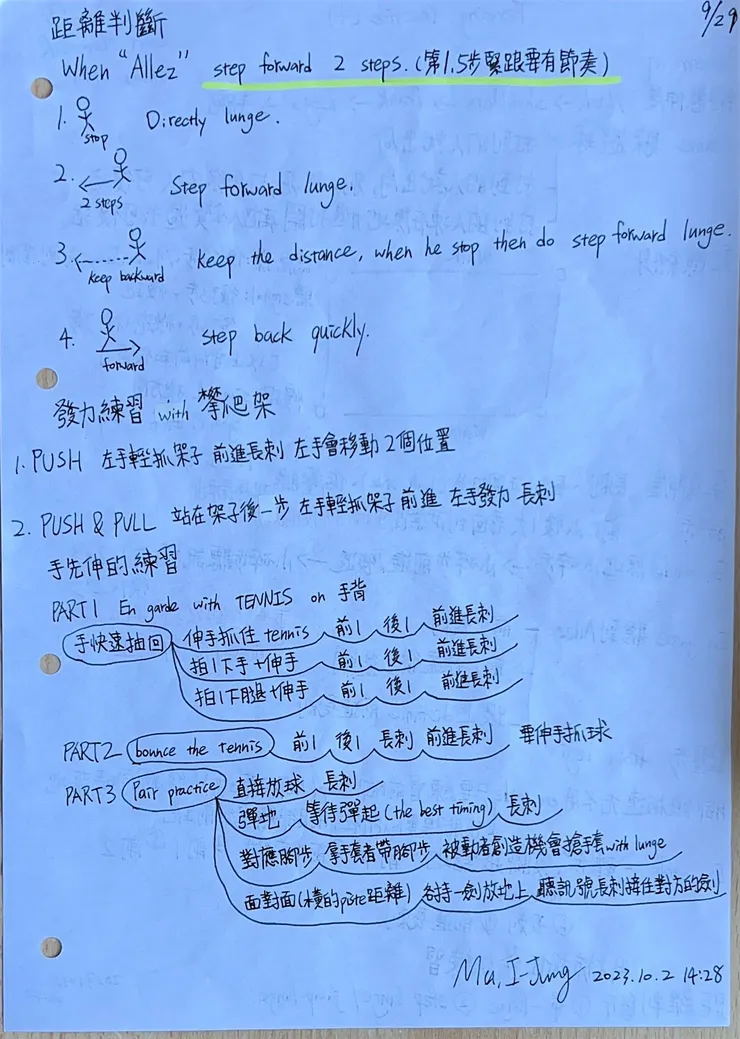 9/29
距離判斷
When "Allez" step forward 2 steps.(第1.5步緊跟要有節奏)
1. stop Directly lunge.
2. 2 steps Step forward lunge.
3. keep backward keep the distance, when he stop then do step forward lunge.
4. forward step back quickly.
發力練習 with 攀爬架
1. PUSH 左手輕抓架子 前進長刺 左手會移動2個位置
2. PUSH & PULL 站在架子後一步 左手輕抓架子 前進 左手發力 長刺
手先伸的練習
PART1 En garde with TENNIS on 手背
手快速抽回 伸手抓住 tennis 前1 後1 前進長刺
拍1下手+伸手 前1 後1 前進長刺
拍1下腿+伸手 前1 後1 前進長刺
PART2 bounce the tennis 前1 後1 長刺 前進長刺 要伸手抓球
PART3 Pair practice 直接放球 長刺
彈地 等待彈起(the best timing) 長刺
對應腳步 拿手套者帶腳步 被動者創造機會搶手套with lunge
面對面(橫的piste距離) 各持一劍放地上 聽訊號長刺接住對方的劍
Ma, I-Jung 2023.10.2 14:28